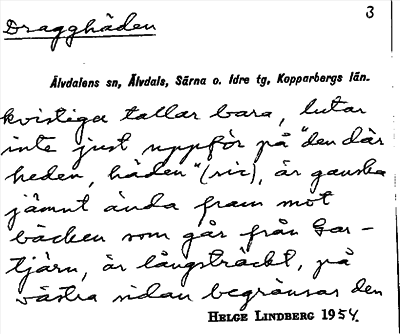 Dragghäden
3
Älvdalens sn, Älvdals, Särna o. Idre tg, Kopparbergs län.
kvistiga tallar bara, lutar
inte just uppför på "den där
heden, häden" (sic), är ganska
jämnt ända fram mot
bäcken som går från Gar-
tjärn, är långsträckt, på
västra sidan begränsar den
HELGE LINDBERG 1954.